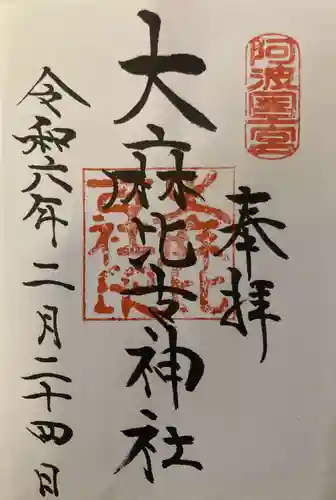 阿波一宮
奉拝
大麻比古神社
大麻比古神社印
令和六年二月二十四日